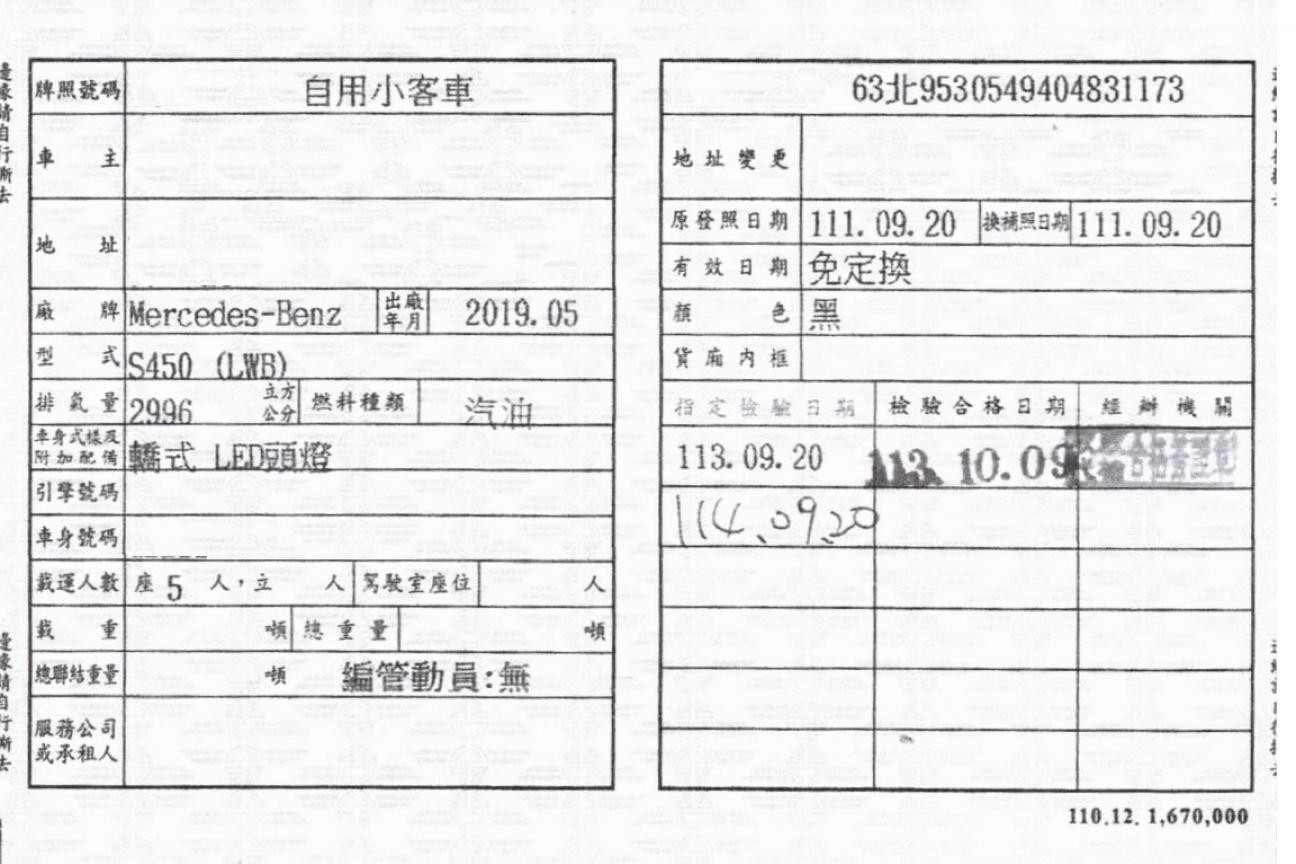 牌照號碼 自用小客車
車主
地址
廠牌 Mercedes-Benz 出廠年月 2019.05
型式 S450 (LWB)
排氣量 2996 立方公分 燃料種類 汽油
車身式樣及附加配備 轎式 LED頭燈
引擎號碼
車身號碼
載運人數 座 5 人,立 人 駕駛室座位 人
載重 噸 總重量 噸
總聯結重量 噸 編管動員:無
服務公司或承租人
63北9530549404831173
地址變更
原發照日期 111.09.20 換補照日期 111.09.20
有效日期 免定換
顏色 黑
貨廂內框
指定檢驗日期 檢驗合格日期 經辦機關
113.09.20 113.10.09
114.09.20
110.12. 1,670,000
邊緣請自行撕去
邊緣請自行撕去